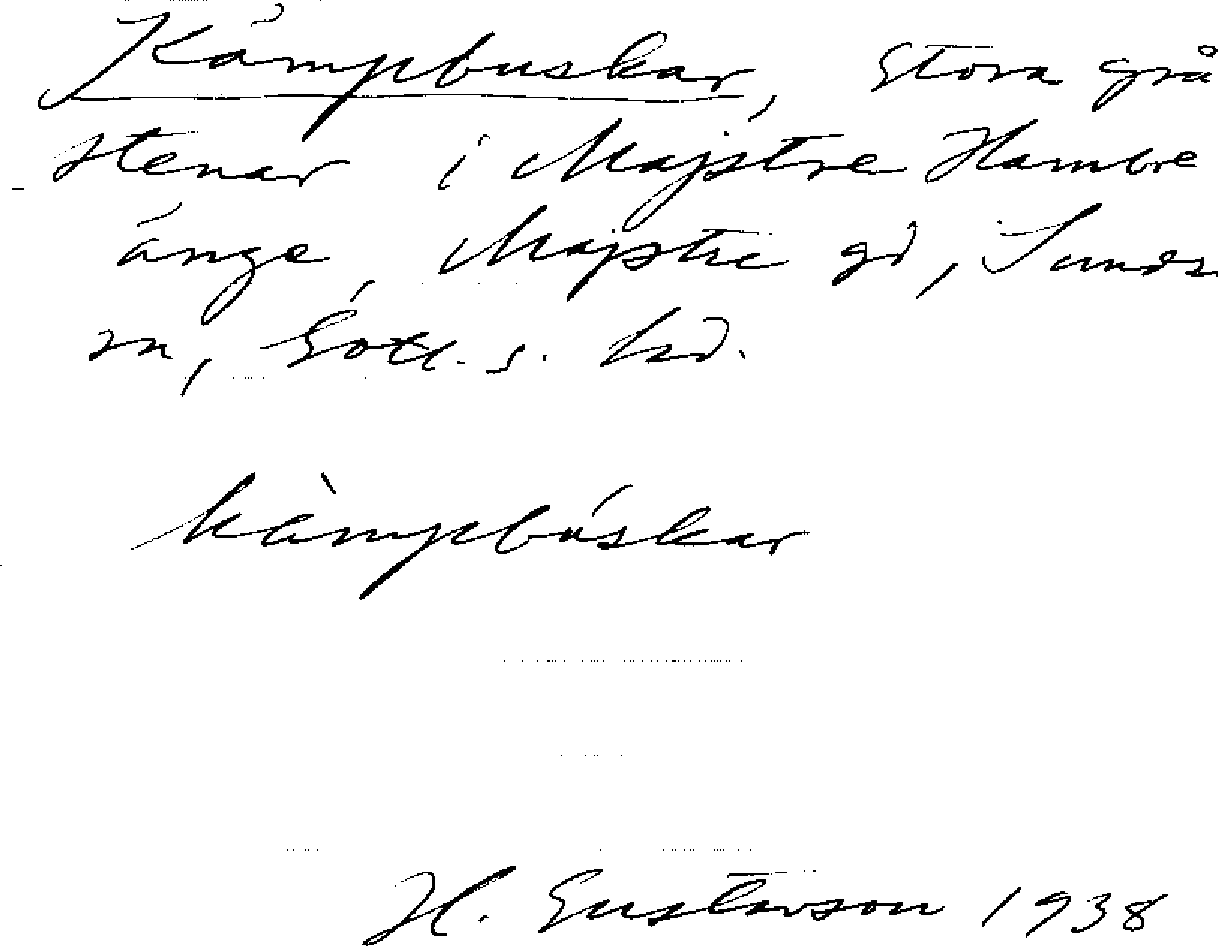 Kämpbuskar, stora grå
stenar i Majstre Hambre
änge, Majstre gd, Sundre
sn, Gotl. s. hd.
kämpbúskar
H. Gustavson 1938